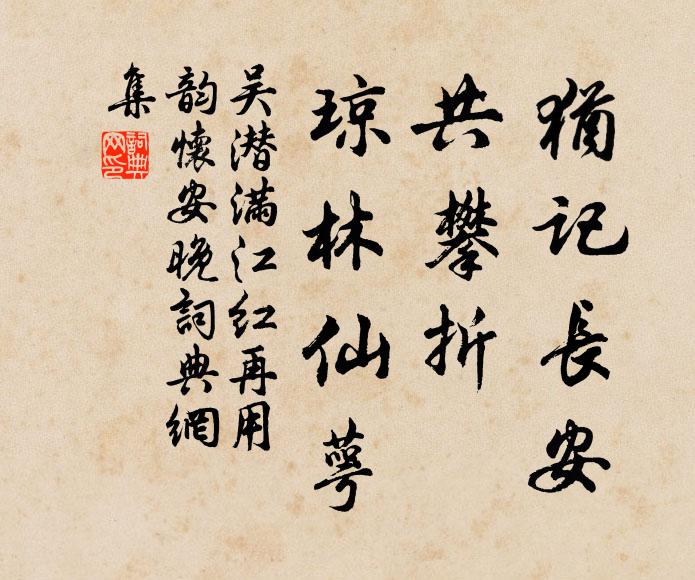 猶記長安
共攀折
琼林仙萼
吴潜满江红再用
韵懷安晚詞典網
集
詞典網印